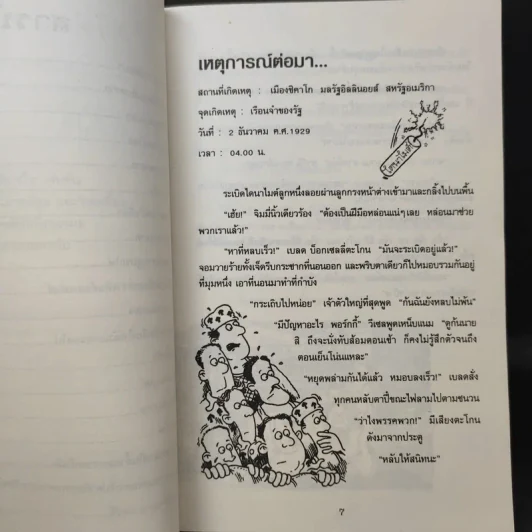 เหตุการณ์ต่อมา...
สถานที่เกิดเหตุ : เมืองชิคาโก มลรัฐอิลลินอยส์ สหรัฐอเมริกา
จุดเกิดเหตุ : เรือนจำของรัฐ
วันที่ : 2 ธันวาคม ค.ศ.1929
เวลา : 04.00 น.
ไดนาไมต์
ระเบิดไดนาไมต์ลูกหนึ่งลอยผ่านลูกกรงหน้าต่างเข้ามาและกลิ้งไปบนพื้น
"เฮ้ย!" จิมมี่นิ้วเดียวร้อง "ต้องเป็นฝีมือหล่อนแน่ๆเลย หล่อนมาช่วย
พวกเราแล้ว!"
"หาที่หลบเร็ว!" เบลด บ็อกเซลลี่ตะโกน "มันจะระเบิดอยู่แล้ว!"
จอมวายร้ายทั้งเจ็ดรีบกระชากที่นอนออก และพริบตาเดียวก็ไปหมอบรวมกันอยู่
ที่มุมหนึ่ง เอาที่นอนมาทำที่กำบัง
"กระเถิบไปหน่อย" เจ้าตัวใหญ่ที่สุดพูด "ก้นฉันยังหลบไม่พ้น"
"มีปัญหาอะไร พอร์กกี้" วีเซลพูดเหน็บแนม "ดูก้นนาย
สิ ถึงจะนั่งทับส้อมตอนเช้า ก็คงไม่รู้สึกตัวจนถึง
ตอนเย็นโน่นแหละ"
"หยุดพล่ามกันได้แล้ว หมอบลงเร็ว!" เบลดสั่ง
ทุกคนหลับตาปี๋ขณะไฟลามไปตามชนวน
"ว่าไงพรรคพวก!" มีเสียงตะโกน
ดังมาจากประตู
"หลับให้สนิทนะ"
7